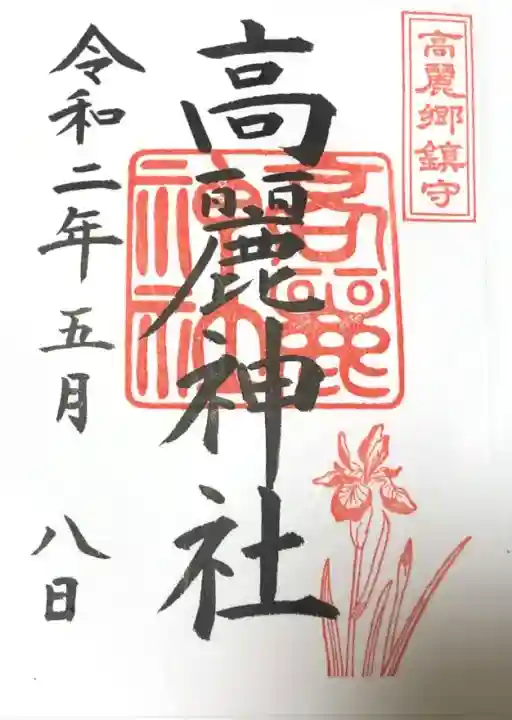 高麗郷鎮守
高麗神社
高麗神社
令和二年五月 八日